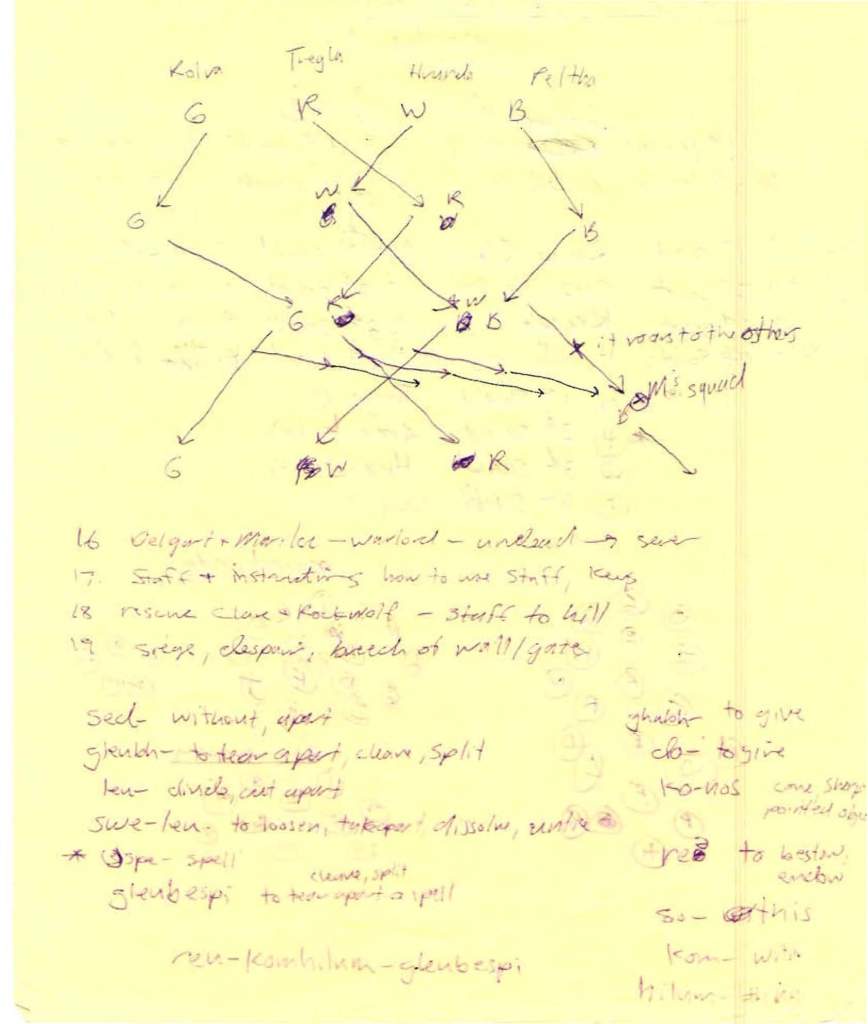 Kolva Tregla Hrunda Peltha
G R W B
G W R B
G R W B
it roars to the others
M's squad
B
G W R
16 Delgart + Marilee - warlord - undead → sever
17. Staff + instructions how to use staff, keys
18 rescue Clare + Rockwolf - staff to hill
19 siege, despair, breech of wall/gate
sed- without, apart
gleubh- to tear apart, cleave, split
leu- divide, cut apart
swe-leu- to loosen, take apart dissolve, untie
* spe- spell
cleave, split
gleubespi to tear apart a spell
reu-komhilum-gleubespi
ghabh- to give
do- to give
ko-nos cone, sharp
pointed obje
to bestow,
endow
so- this
kom- with
hilum-